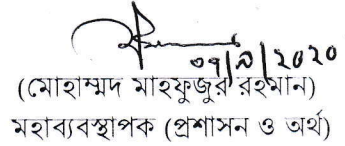 ০৭/৯/২০২০
(মোহাম্মদ মাহফুজুর রহমান)
মহাব্যবস্থাপক (প্রশাসন ও অর্থ)